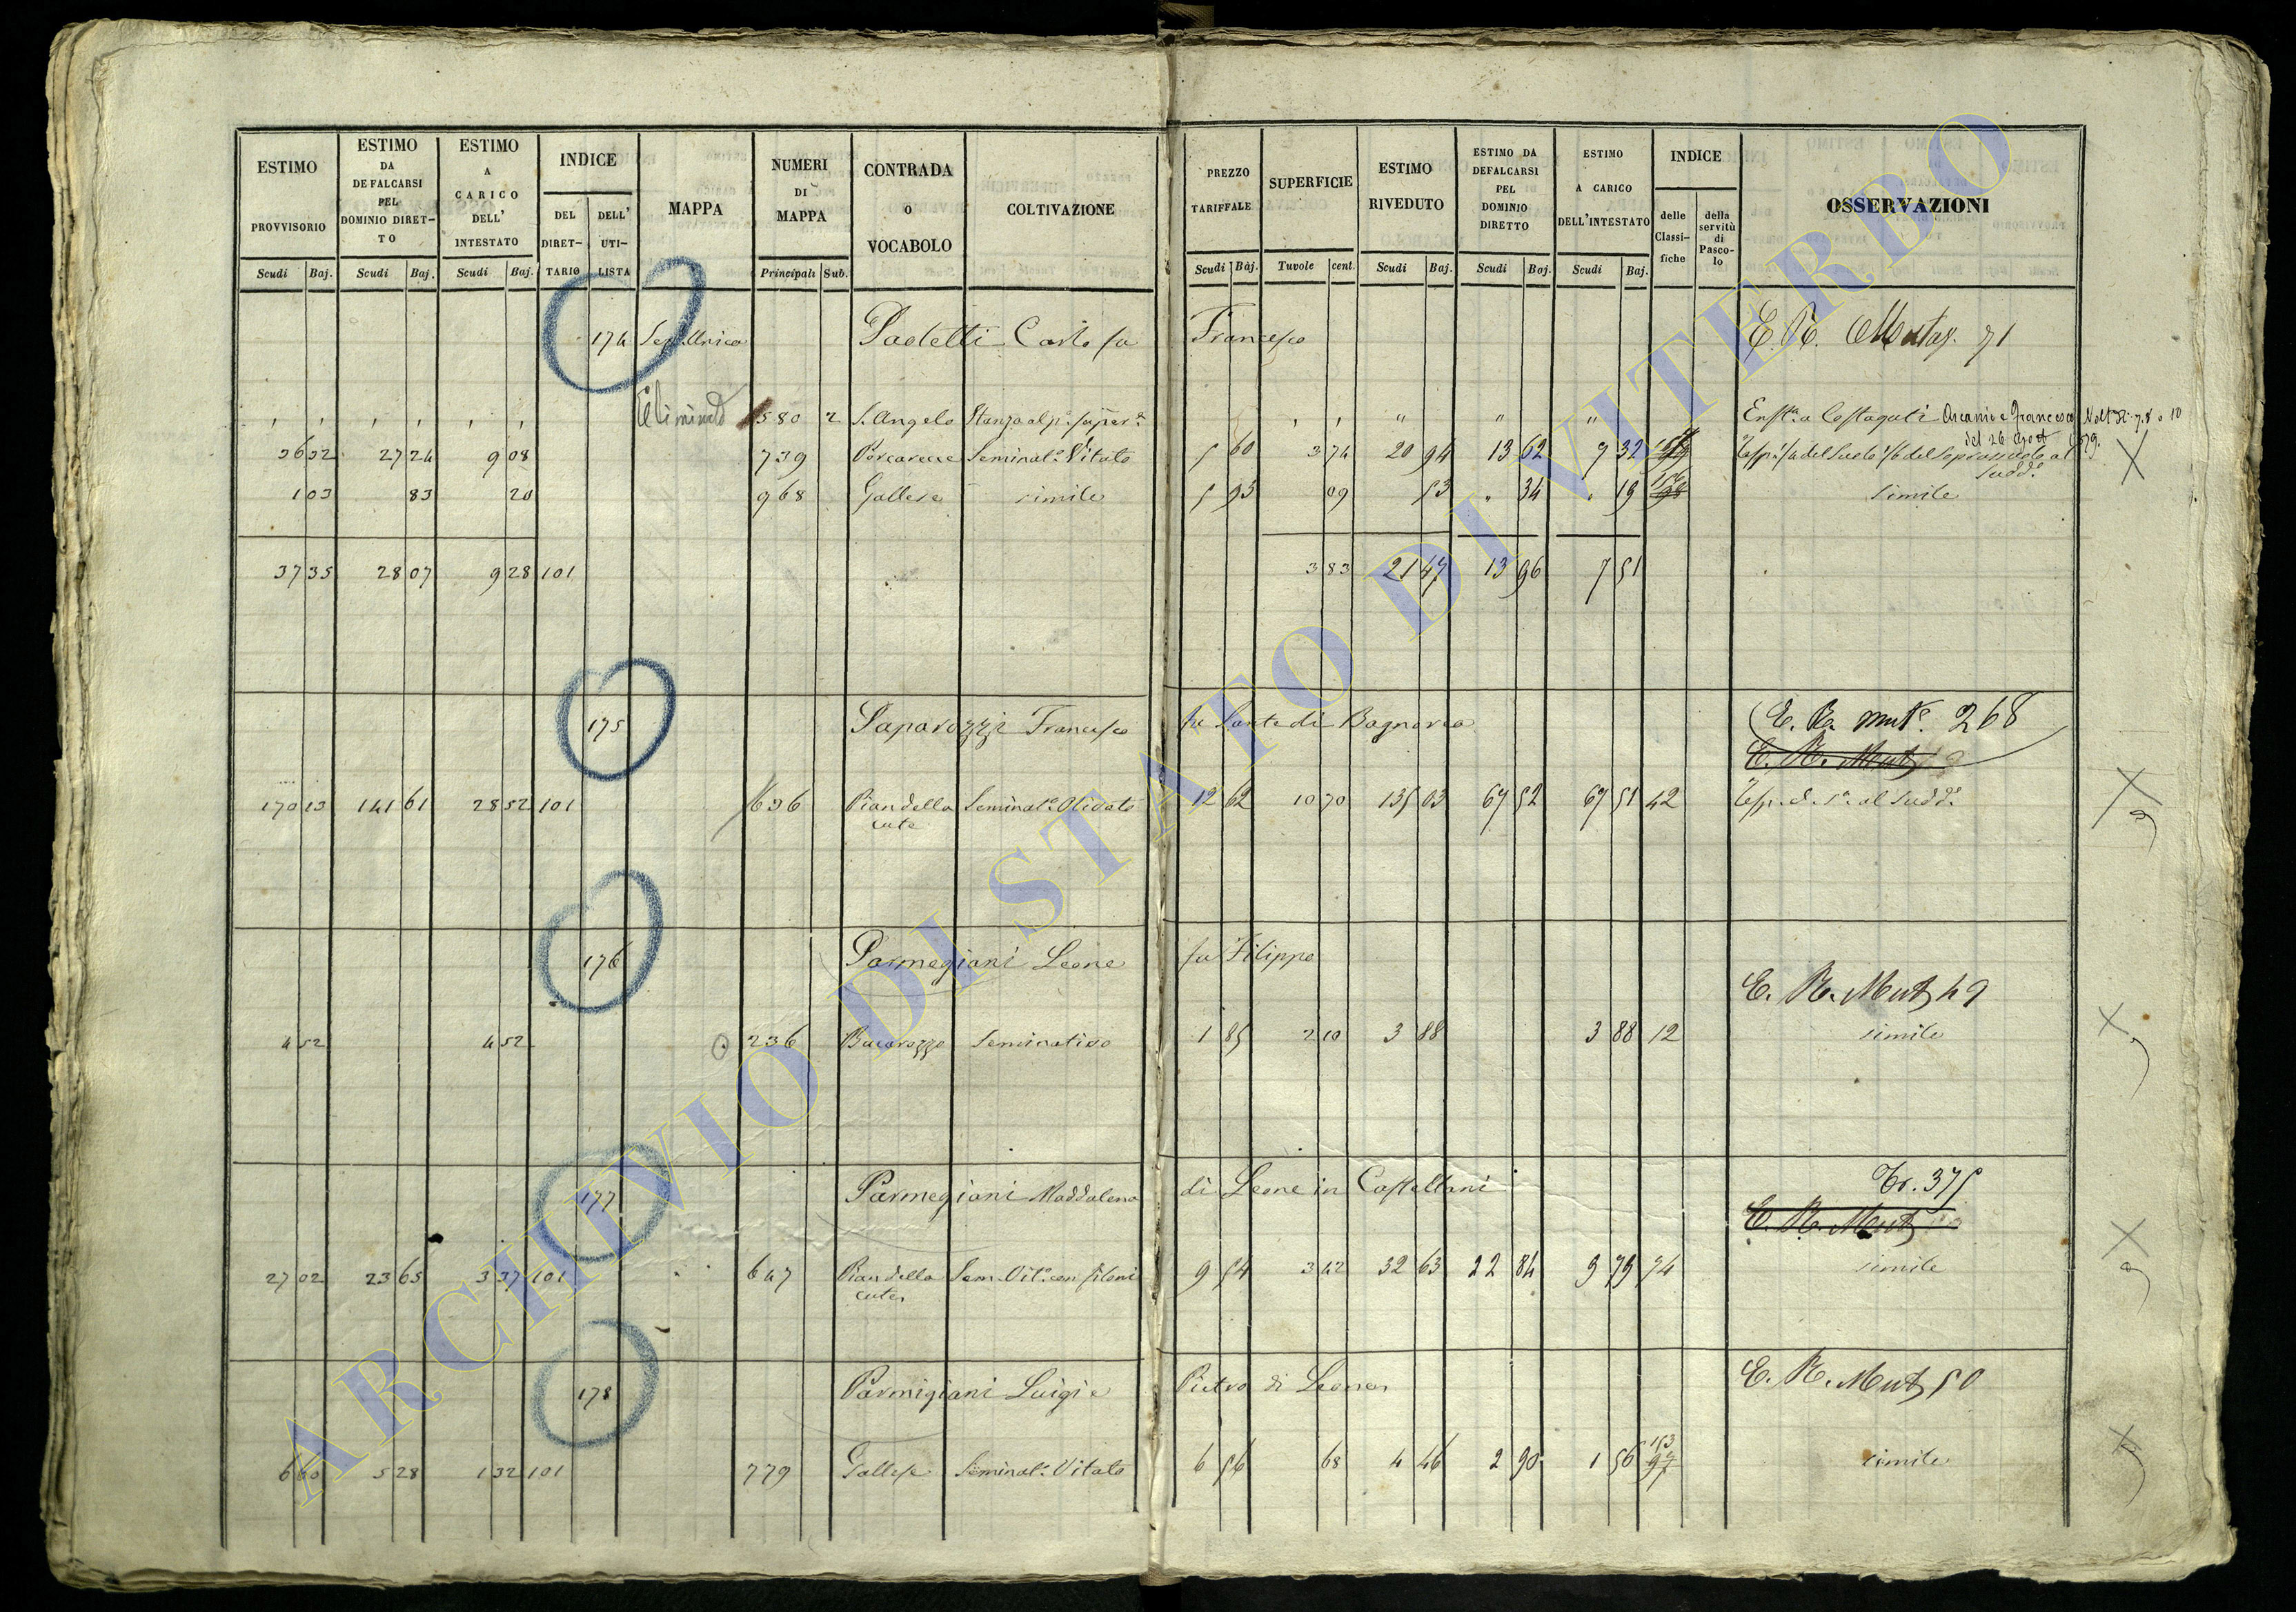 ESTIMO PROVVISORIO Scudi Baj.
ESTIMO DA DEFALCARSI PEL DOMINIO DIRET-TO Scudi Baj.
ESTIMO A CARICO DELL' INTESTATO Scudi Baj.
INDICE DEL DIRET-TARIO DELL' UTI-LISTA
MAPPA
NUMERI DI MAPPA Principali Sub.
CONTRADA O VOCABOLO
COLTIVAZIONE
PREZZO TARIFFALE Scudi Baj.
SUPERFICIE Tavole cent.
ESTIMO RIVEDUTO Scudi Baj.
ESTIMO DA DEFALCARSI PEL DOMINIO DIRETTO Scudi Baj.
ESTIMO A CARICO DELL'INTESTATO Scudi Baj.
INDICE delle Classi-fiche della servitù di Pasco-lo
OSSERVAZIONI
174 Sez. Unica Paoletti Carlo fu Francesco E. R. Mutaz. 71
Eliminato 580 2 S. Angelo Stanza al p.º super.e Enft.a a Costaguti Ascanio e Francesco Volt. N. 7.8 e 10
del 26 Agost 1879.
36 32 27 24 9 08 739 Porcarecce Seminat.º Vitato 5 60 3 74 20 94 13 62 7 32
sudd.º
1 03 83 20 968 Gallese simile 5 93 09 53 " 34 " 19 simile
37 35 28 07 9 28 101 3 83 21 47 13 96 7 51
175 Paparozzi Francesco fu Sante di Bagnorea E. R. mut.e 268
E. R. Mut
170 13 141 61 28 52 101 636 Pian della Seminat.º Olivato 12 62 10 70 135 03 67 52 67 51 42 al sudd.º
cute
176 Parmegiani Leone fu Filippo
E. R. Mut 49
4 52 4 52 236 Bacarozzo Seminativo 1 85 2 10 3 88 3 88 12 simile
177 Parmegiani Maddalena di Leone in Castellani Tr. 375
E. R. Mut
27 02 23 65 3 37 101 647 Pian della Sem. Vit.º con filoni 9 54 3 42 32 63 22 84 9 79 74 simile
cute
178 Parmigiani Luigi e Pietro di Leone E. R. Mut 50
6 60 5 28 1 32 101 779 Gallese Seminat.º Vitato 6 56 68 4 46 2 90 1 56 153 97 simile
ARCHIVIO DI STATO DI VITERBO